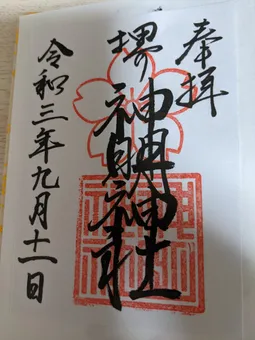 奉拝
堺
神明神社
神明神社
令和三年九月十一日